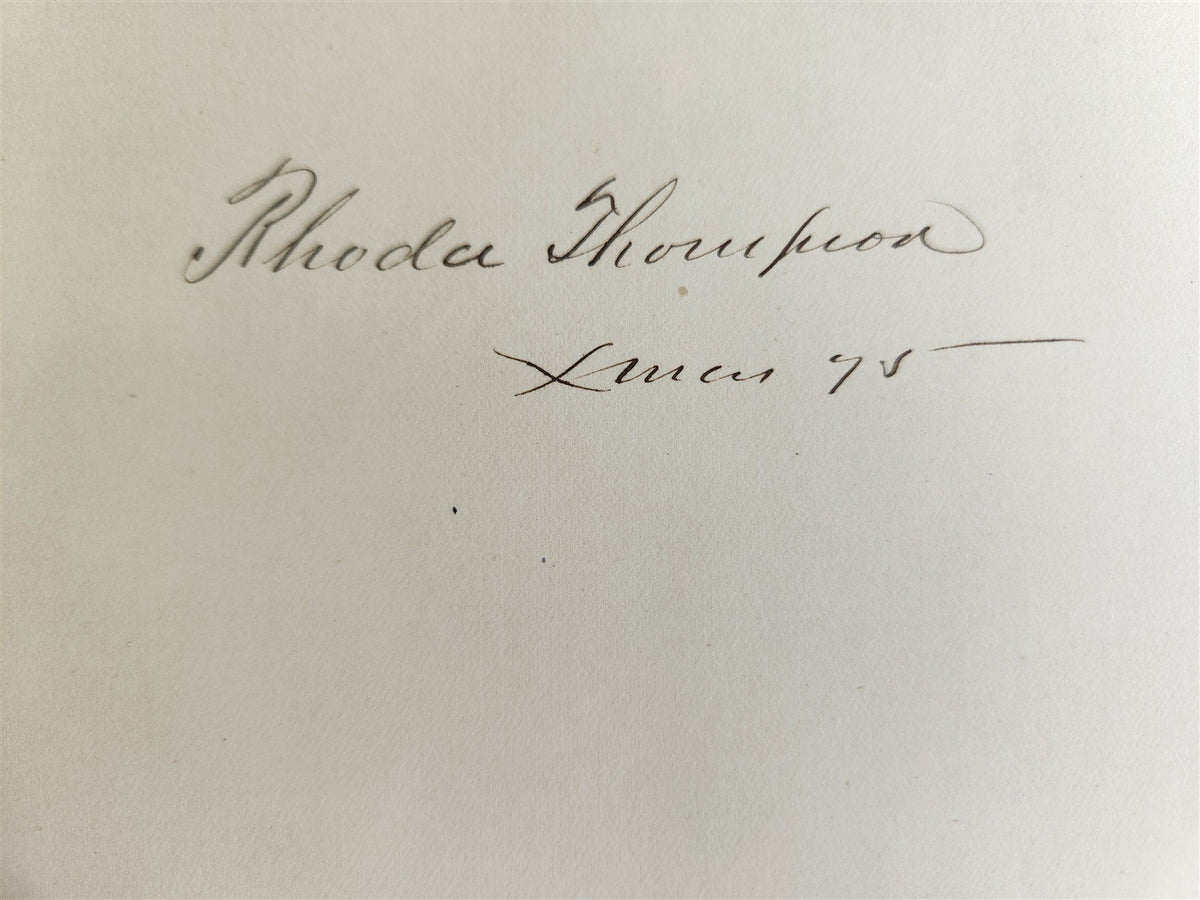 Rhoda Thompson
Xmas 75